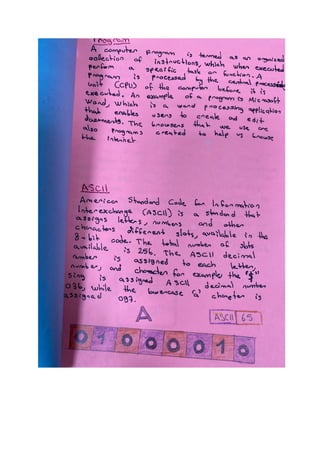 Program
A computer program is termed as an organized
collection of instructions, which when executed
perform a specific task or function. A
program is processed by the central processing
unit (CPU) of the computer before it is
executed. An example of a program is Microsoft
Word, which is a word processing application
that enables users to create and edit
documents. The browsers that we use are
also programs created to help us browse
the internet
ASCII
American Standard Code for Information
Interexchange (ASCII) is a standard that
assigns letters, numbers and other
characters different slots, available in the
8-bit code. The total number of slots
available is 256. The ASCII decimal
number is assigned to each letter,
number, and character for example the "$"
sing is assigned ASCII decimal number
036, while the lowercase 'a' charapter is
assigned 097.
A
ASCII 65
0 1 0 0 0 0 1 0